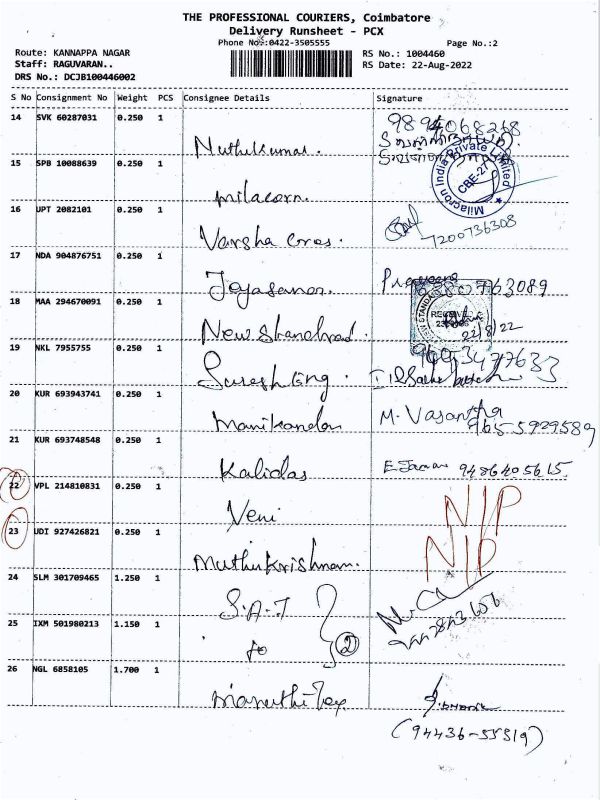 THE PROFESSIONAL COURIERS, Coimbatore
Delivery Runsheet - PCX
Phone No.:0422-3505555
Page No.:2
Route: KANNAPPA NAGAR
RS No.: 1004460
Staff: RAGUVARAN..
RS Date: 22-Aug-2022
DRS No.: DCJB100446002
S No Consignment No Weight PCS Consignee Details Signature
14 SVK 60287031 0.250 1 Muthukumar.
15 SPB 10088639 0.250 1 milacorn.
Milacron India Private Limited
CBE-27
16 UPT 2082101 0.250 1 Varsha Gros. 7200736308
17 NDA 904876751 0.250 1 Praveena
18 MAA 294670091 0.250 1 New Standard.
RECEIVED
22/8/22
19 NKL 7955755 0.250 1 Suresh Eng.
20 KUR 693943741 0.250 1 Manikandan M. Vasantha
9655929589
21 KUR 693748548 0.250 1 Kalidas 9486405615
22 VPL 214810831 0.250 1 Veni N/P
23 UDI 927426821 0.250 1 Muthukrishnan. N/D
24 SLM 301709465 1.250 1 S.A.T
25 IXM 501980213 1.150 1 to 2
26 NGL 6858105 1.700 1 Maruthi Tex
(94436-55519)